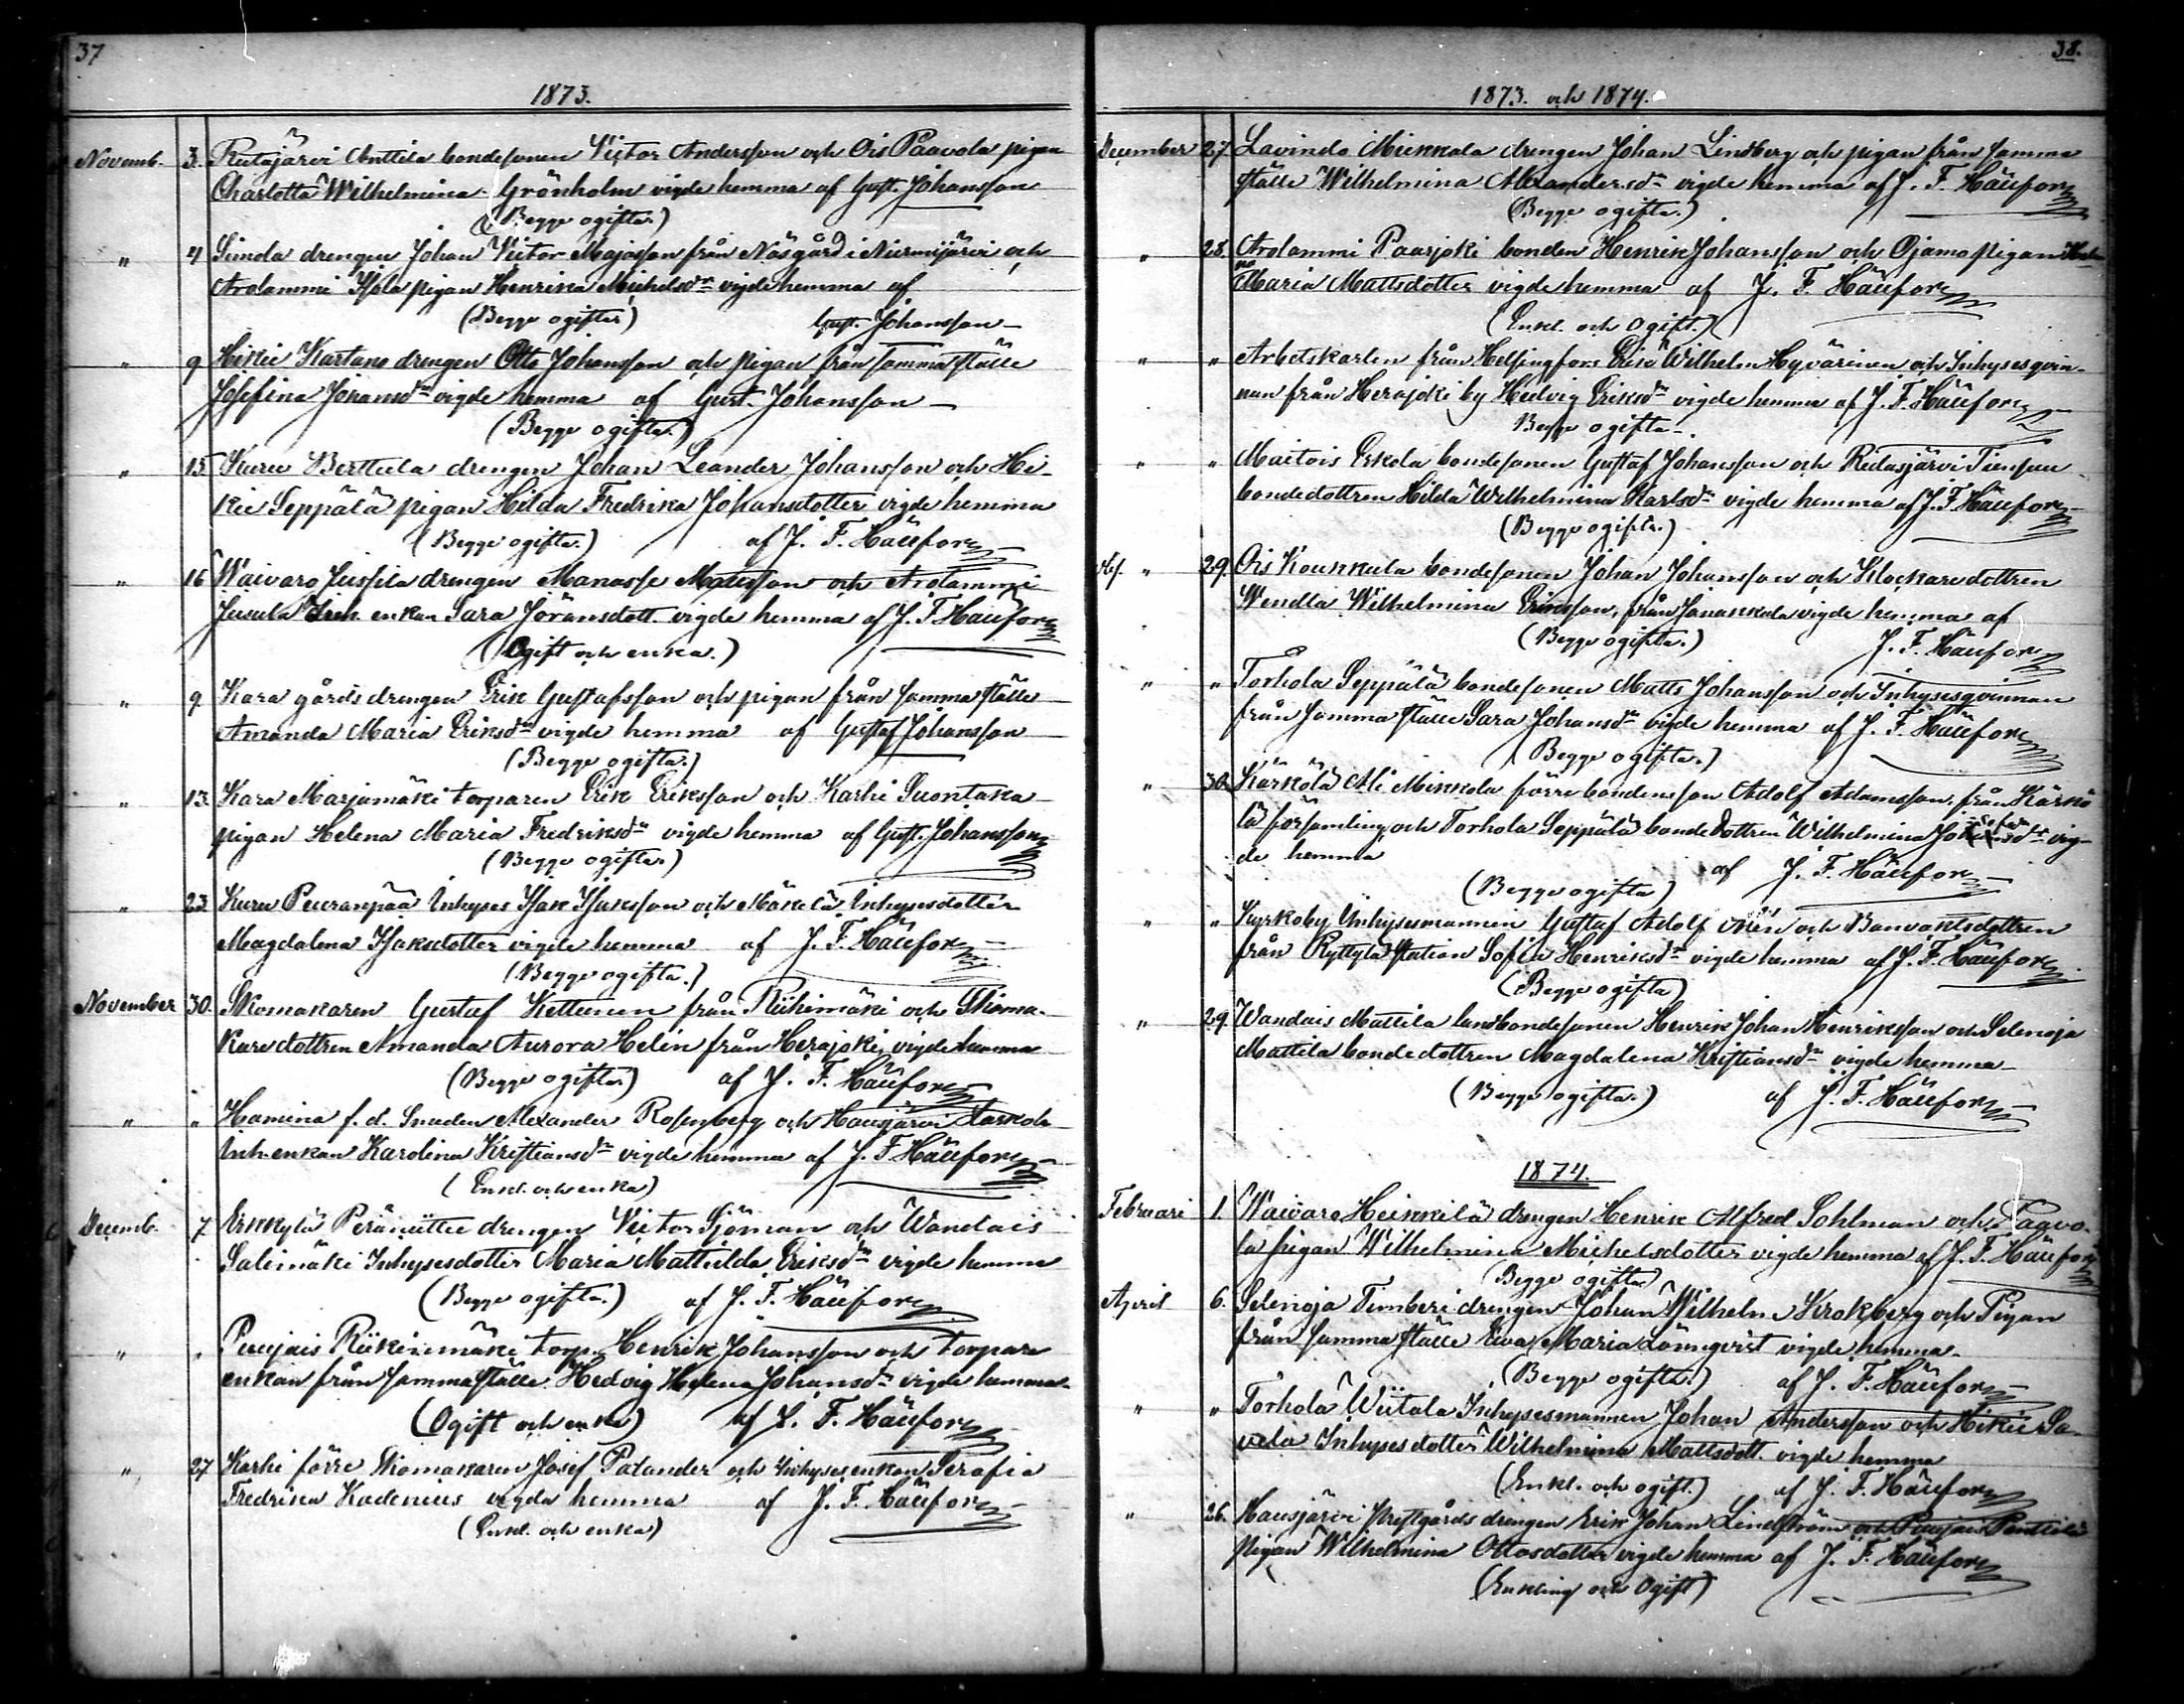 37
1873.
Novemb. 3. Rutajärvi Anttila bondesonen Victor Andersson och Ois Paavola pigan
Charlotta Wilhelmina Grönholm vigde hemma af Gust. Johansson
(Begge ogifta.)
" 4 drengen Johan Victor Majasson från Näsgård i Nurmijärvi och
Arolammi Isola pigan Henrika Michelsdr vigde hemma af
(Begge ogifta) Gust. Johansson
" 9 Hikie Kartano drengen Otto Johansson och pigan från samma ställe
Josefina Johansdr vigde hemma af Gust. Johansson
(Begge ogifta.)
" 15. Kuru Berttula drengen Johan Leander Johansson och Hi-
kie Seppälä pigan Hilda Fredrika Johansdotter vigde hemma
(Begge ogifta.) af J. F. Häufore
" 16 Waivaro Jussila drengen Manasse Matsson och Arolammi
Jusula Inh. enkan Sara Jöransdott. vigde hemma af J. F. Häufore
(Ogift och enka.)
" 9 Kara gårds drengen Erik Gustafsson och pigan från samma ställe
Amanda Maria Eriksdr vigde hemma af Gustaf Johansson
(Begge ogifta.)
" 13. Kara Marjamäki torparen Erik Eriksson och Karhi Suontaka
pigan Helena Maria Fredriksdr vigde hemma af Gust. Johansson
(Begge ogifta.)
" 23 Kuru Peuranpää Inhyses Isak Isaksson och Mäkelä Inhysesdotter
Magdalena Isaksdotter vigde hemma af J. F. Häufore
(Begge ogifta.)
November 30. Skomakaren Gustaf Kettunen från Riihimäki och Skoma-
karedottren Amanda Aurora Helin från Herajoki, vigde hemma
(Begge ogifta) af J. F. Häufore
" " Hamina f. d. Alexander Rosenberg och Hausjärvi
Inh. enkan Karolina Kristiansdr vigde hemma af J. F. Häufore
(Enkl. och enka)
Decemb. 7 Erkkylä drengen Victor Sjöman och Wandais
Salimäki Inhysesdotter Maria Mathilda Eriksdr vigde hemma
(Begge ogifta.) af J. F. Häufore
" " Torp. Henrik Johansson och torpare
enkan från samma ställe Hedvig Helena Johansdr vigde hemma
(Ogift och enka) af J. F. Häufore
" 27 Karhi förre Skomakaren Josef Palander och Inhyses enkan Serafia
Fredrika Kadenius vigda hemma af J. F. Häufore
(Enkl. och enka)
38.
1873. och 1874.
December 27. Lavindo Mikkala drengen Johan Lindberg och pigan från samma
ställe Wilhelmina Alexandersdr vigde hemma af J. F. Häufore
(Begge ogifta.)
" 28. Arolammi Paarjoki bonden Henrik Johansson och Ojamo pigan
Maria Mattsdotter vigde hemma af J. F. Häufore
(Enkl. och Ogift.)
" " Arbetskarlen från Helsingfors Erik Wilhelm Hyvärinen och Inhysesqvin-
nan från Herajoki by Hedvig Eriksdr vigde hemma af J. F. Häufore
Begge ogifta.
" " Maitois Eskola bondesonen Gustaf Johansson och Ridasjärvi
bondedottren Hilda Wilhelmina Karlsdr vigde hemma af J. F. Häufore
(Begge ogifta.)
" 29. Ois Koukkula bondesonen Johan Johansson och Klockaredottren
Wendla Wilhelmina Eriksson, från Janakkala vigde hemma af
(Begge ogifta.) J. F. Häufore
" " Torhola Seppälä bondesonen Matts Johansson och Inhysesqvinnan
från samma ställe Sara Johansdr vigde hemma af J. F. Häufore
(Begge ogifta.)
" 30. Kärkölä Ali Mikkola förre bondenson Adolf Adamsson, från Kärkö
lä församling och Torhola Seppälä bondedottren Wilhelmina Josefsdr vig-
de hemma af J. F. Häufore
(Begge ogifta)
" " Kyrkoby Inhysesmannen Gustaf Adolf och Banvaktsdottren
från Ryttylä Station Sofia Henriksdr vigde hemma af J. F. Häufore
(Begge ogifta)
" 29. Wandais Mattila landbondesonen Henrik Johan Henriksson och Selenoja
Mattila bondedottren Magdalena Kristiansdr vigde hemma
(Begge ogifta.) af J. F. Häufore
1874.
Februari 1. Waivaro Heikkilä drengen Henrik Alfred Sohlman och Paavo-
la pigan Wilhelmina Michelsdotter vigde hemma af J. F. Häufore
(Begge ogifta)
April 6. Selenoja Timberi drengen Johan Wilhelm Krokberg och Pigan
från samma ställe Eva Maria Lönnqvist vigde hemma
(Begge ogifta.) af J. F. Häufore
" " Torhola Wiitala Inhysesmannen Johan Andersson och Hikie Sa-
vela Inhysesdotter Wilhelmina Mattsdott. vigde hemma
(Enkl. och ogift.) af J. F. Häufore
" 26. Hausjärvi Prestgårds drengen Erik Johan Lindström och Penttilä
Pigan Wilhelmina Ottosdotter vigde hemma af J. F. Häufore
(Enkling och Ogift)